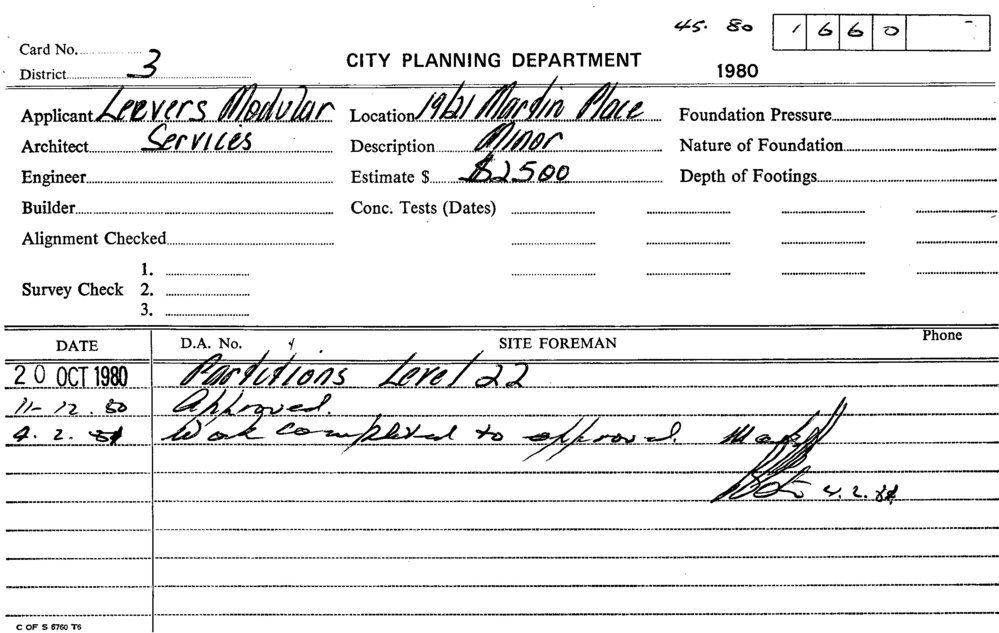 45. 80 1660
Card No.
District 3
CITY PLANNING DEPARTMENT
1980
Applicant Leevers Modular
Location 19/21 Martin Place
Foundation Pressure
Architect Services
Description Minor
Nature of Foundation
Engineer
Estimate $ $2500
Depth of Footings
Builder
Conc. Tests (Dates)
Alignment Checked
Survey Check
1.
2.
3.
DATE
D.A. No.
SITE FOREMAN
Phone
20 OCT 1980 Partitions Level 22
11-12.80 Approved.
4.2.81 Work completed to approval.
4.2.81
C OF S 6760 T6